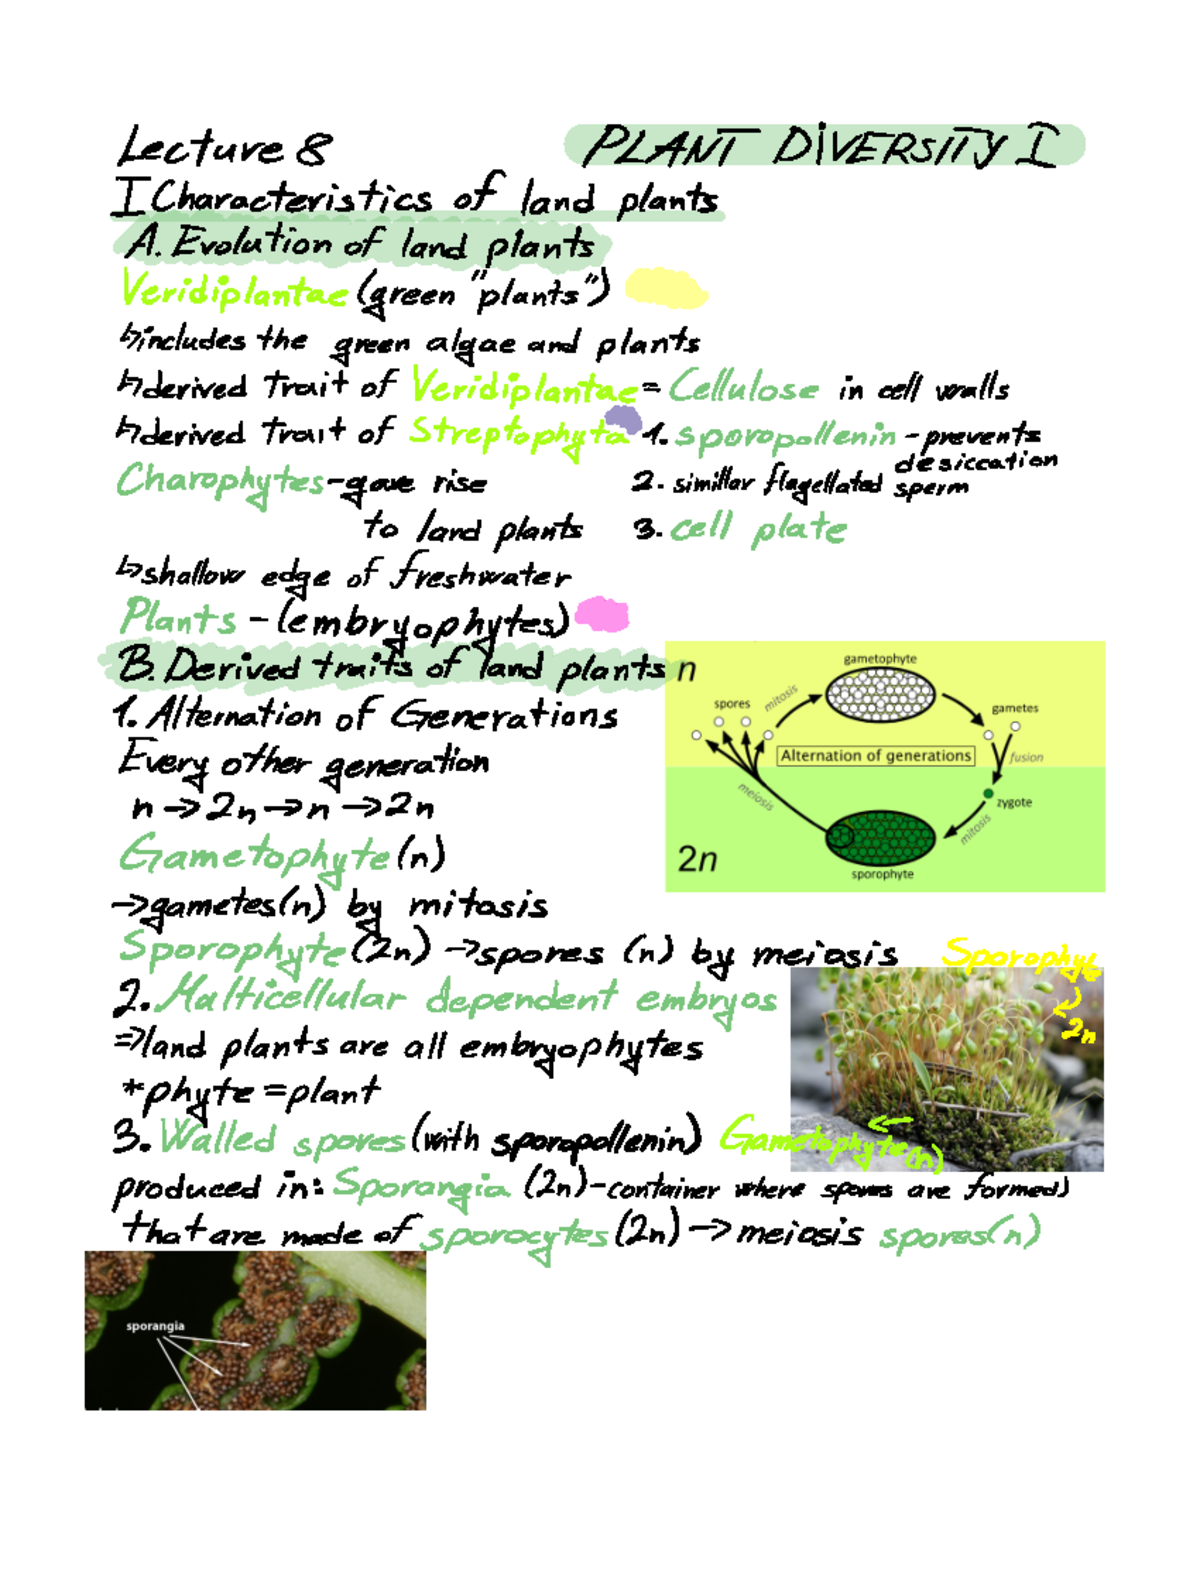 Lecture 8
PLANT DIVERSITY I
I Characteristics of land plants
A. Evolution of land plants
Veridiplantae (green "plants")
↳includes the green algae and plants
↳derived trait of Veridiplantae = Cellulose in cell walls
↳derived trait of Streptophyta 1. sporopollenin - prevents
desiccation
Charophytes - gave rise
to land plants
2. simillar flagellated sperm
3. cell plate
↳shallow edge of freshwater
Plants - (embryophytes)
B. Derived traits of land plants
1. Alternation of Generations
Every other generation
n → 2n → n → 2n
Gametophyte (n)
→gametes(n) by mitosis
Sporophyte (2n) →spores (n) by meiosis
n
gametophyte
mitosis
spores
gametes
Alternation of generations
fusion
meiosis
zygote
mitosis
2n
sporophyte
Sporophyte
2n
2. Multicellular dependent embryos
⇒land plants are all embryophytes
*phyte = plant
3. Walled spores (with sporopollenin)
Gametophyte(n)
produced in: Sporangia (2n) - container where spores are formed)
that are made of sporocytes (2n) → meiosis spores(n)
sporangia